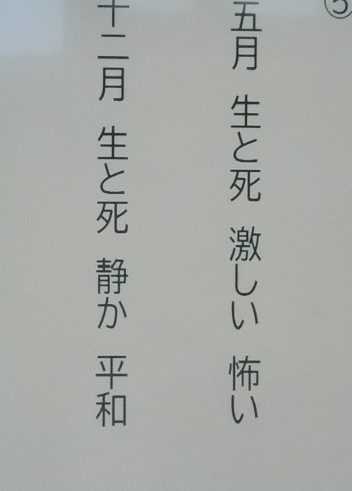 ⑤
五月 生と死 激しい 怖い
十二月 生と死 静か 平和